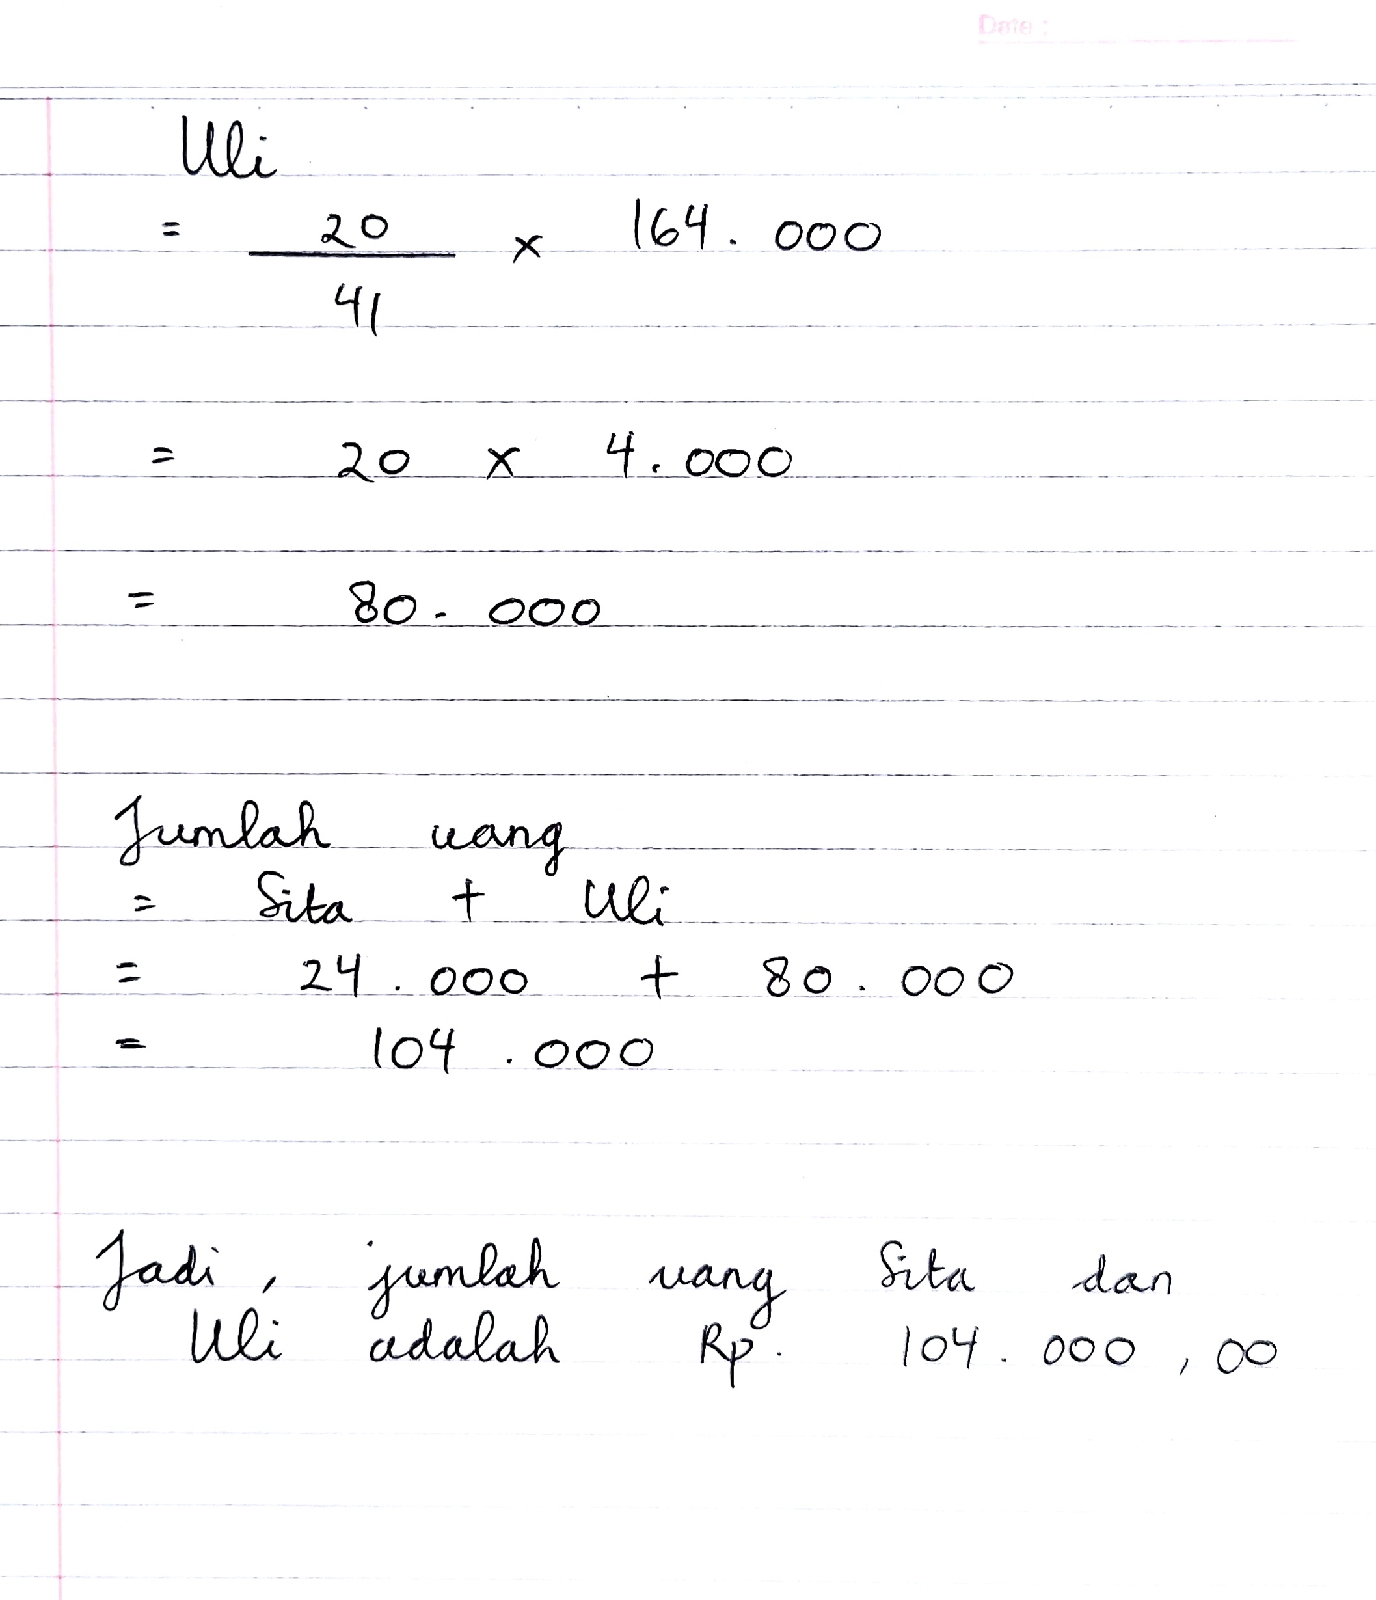 Date :
Uli
= 20/41 x 164.000
= 20 x 4.000
= 80.000
Jumlah uang
= Sita + Uli
= 24.000 + 80.000
= 104.000
Jadi, jumlah uang Sita dan
Uli adalah Rp. 104.000,00